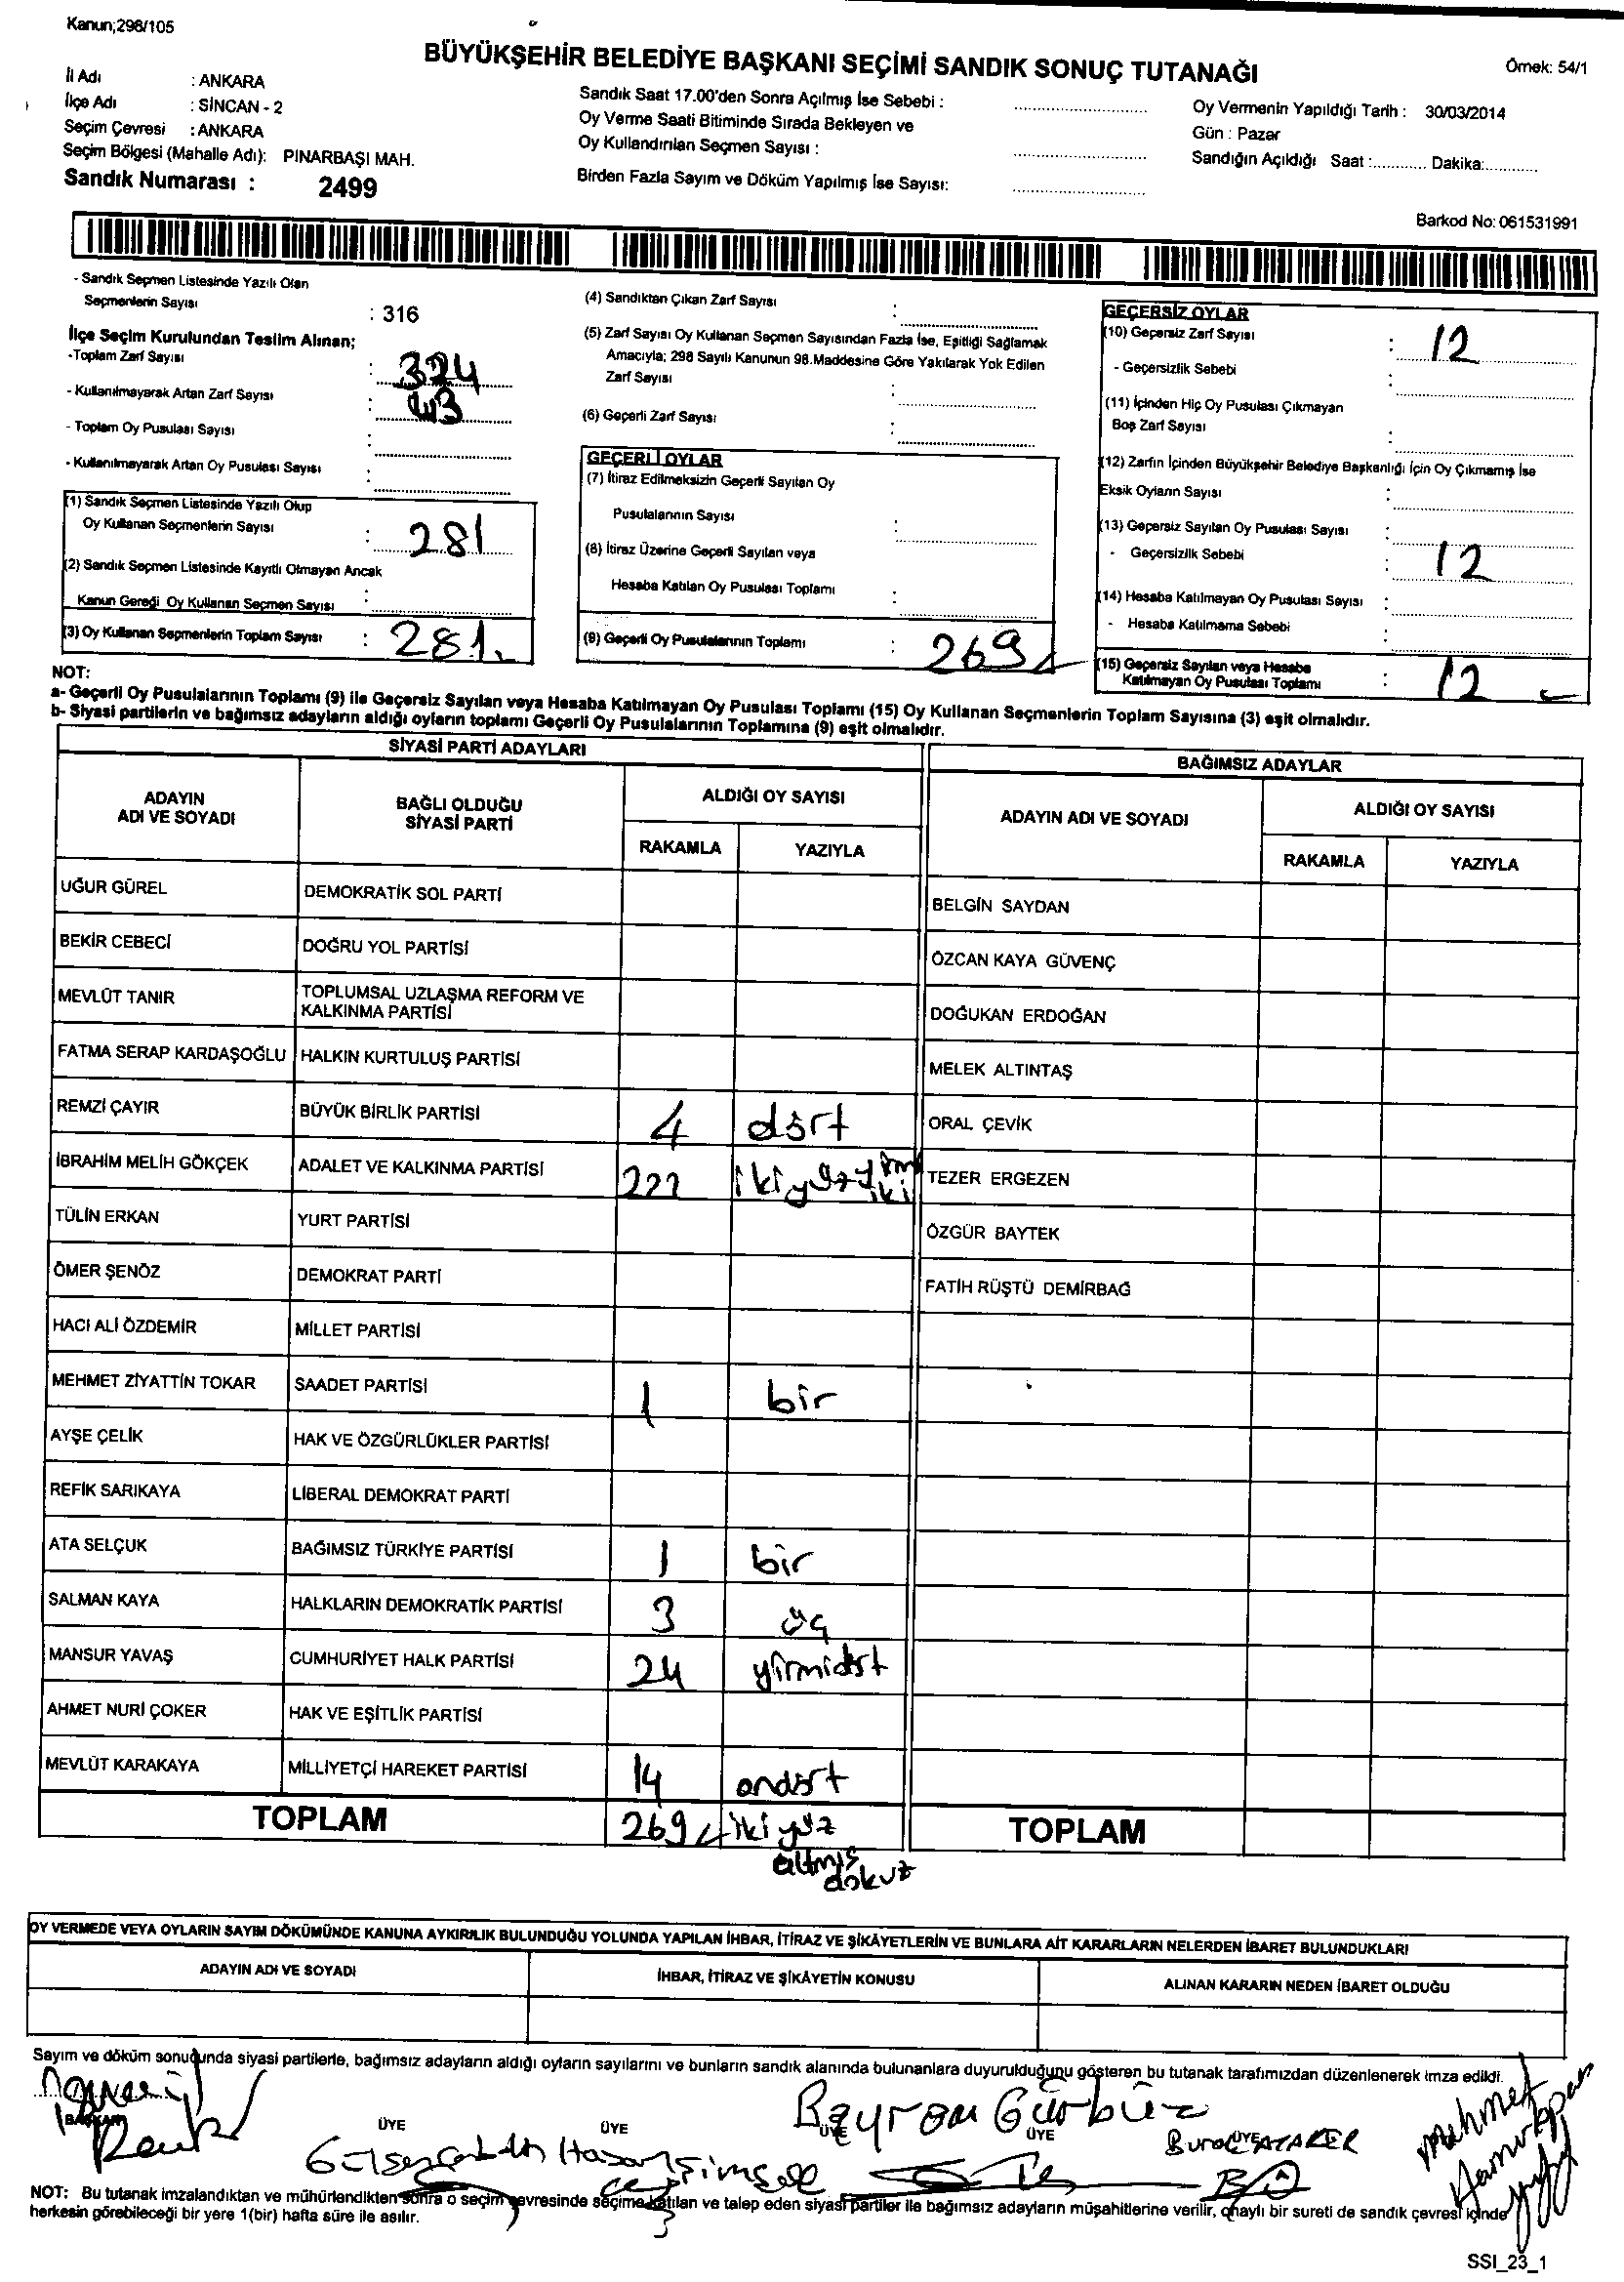 Kanun;298/105
BÜYÜKŞEHİR BELEDİYE BAŞKANI SEÇİMİ SANDIK SONUÇ TUTANAĞI
Örnek: 54/1
İl Adı : ANKARA
İlçe Adı : SİNCAN - 2
Seçim Çevresi : ANKARA
Seçim Bölgesi (Mahalle Adı): PINARBAŞI MAH.
Sandık Numarası : 2499
Sandık Saat 17.00'den Sonra Açılmış İse Sebebi :
Oy Verme Saati Bitiminde Sırada Bekleyen ve
Oy Kullandırılan Seçmen Sayısı :
Birden Fazla Sayım ve Döküm Yapılmış İse Sayısı:
Oy Vermenin Yapıldığı Tarih : 30/03/2014
Gün : Pazar
Sandığın Açıldığı Saat :............ Dakika:............
Barkod No: 061531991
- Sandık Seçmen Listesinde Yazılı Olan
Seçmenlerin Sayısı : 316
İlçe Seçim Kurulundan Teslim Alınan;
-Toplam Zarf Sayısı : 324
- Kullanılmayarak Artan Zarf Sayısı : 43
- Toplam Oy Pusulası Sayısı :
- Kullanılmayarak Artan Oy Pusulası Sayısı :
(1) Sandık Seçmen Listesinde Yazılı Olup
Oy Kullanan Seçmenlerin Sayısı : 281
(2) Sandık Seçmen Listesinde Kayıtlı Olmayan Ancak
Kanun Gereği Oy Kullanan Seçmen Sayısı :
(3) Oy Kullanan Seçmenlerin Toplam Sayısı : 281
(4) Sandıktan Çıkan Zarf Sayısı :
(5) Zarf Sayısı Oy Kullanan Seçmen Sayısından Fazla İse, Eşitliği Sağlamak
Amacıyla; 298 Sayılı Kanunun 98.Maddesine Göre Yakılarak Yok Edilen
Zarf Sayısı :
(6) Geçerli Zarf Sayısı :
GEÇERLİ OYLAR
(7) İtiraz Edilmeksizin Geçerli Sayılan Oy
Pusulalarının Sayısı :
(8) İtiraz Üzerine Geçerli Sayılan veya
Hesaba Katılan Oy Pusulası Toplamı :
(9) Geçerli Oy Pusulalarının Toplamı : 269
GEÇERSİZ OYLAR
(10) Geçersiz Zarf Sayısı : 12
- Geçersizlik Sebebi :
(11) İçinden Hiç Oy Pusulası Çıkmayan
Boş Zarf Sayısı :
(12) Zarfın İçinden Büyükşehir Belediye Başkanlığı İçin Oy Çıkmamış İse
Eksik Oyların Sayısı :
(13) Geçersiz Sayılan Oy Pusulası Sayısı :
- Geçersizlik Sebebi : 12
(14) Hesaba Katılmayan Oy Pusulası Sayısı :
- Hesaba Katılmama Sebebi :
(15) Geçersiz Sayılan veya Hesaba
Katılmayan Oy Pusulası Toplamı : 12
NOT:
a- Geçerli Oy Pusulalarının Toplamı (9) ile Geçersiz Sayılan veya Hesaba Katılmayan Oy Pusulası Toplamı (15) Oy Kullanan Seçmenlerin Toplam Sayısına (3) eşit olmalıdır.
b- Siyasi partilerin ve bağımsız adayların aldığı oyların toplamı Geçerli Oy Pusulalarının Toplamına (9) eşit olmalıdır.
SİYASİ PARTİ ADAYLARI
ADAYIN ADI VE SOYADI BAĞLI OLDUĞU SİYASİ PARTİ ALDIĞI OY SAYISI
RAKAMLA YAZIYLA
UĞUR GÜREL DEMOKRATİK SOL PARTİ
BEKİR CEBECİ DOĞRU YOL PARTİSİ
MEVLÜT TANIR TOPLUMSAL UZLAŞMA REFORM VE KALKINMA PARTİSİ
FATMA SERAP KARDAŞOĞLU HALKIN KURTULUŞ PARTİSİ
REMZİ ÇAYIR BÜYÜK BİRLİK PARTİSİ 4 dört
İBRAHİM MELİH GÖKÇEK ADALET VE KALKINMA PARTİSİ 222 ikiyüzyirmi iki
TÜLİN ERKAN YURT PARTİSİ
ÖMER ŞENÖZ DEMOKRAT PARTİ
HACI ALİ ÖZDEMİR MİLLET PARTİSİ
MEHMET ZİYATTİN TOKAR SAADET PARTİSİ 1 bir
AYŞE ÇELİK HAK VE ÖZGÜRLÜKLER PARTİSİ
REFİK SARIKAYA LİBERAL DEMOKRAT PARTİ
ATA SELÇUK BAĞIMSIZ TÜRKİYE PARTİSİ 1 bir
SALMAN KAYA HALKLARIN DEMOKRATİK PARTİSİ 3 üç
MANSUR YAVAŞ CUMHURİYET HALK PARTİSİ 24 yirmidört
AHMET NURİ ÇOKER HAK VE EŞİTLİK PARTİSİ
MEVLÜT KARAKAYA MİLLİYETÇİ HAREKET PARTİSİ 14 ondört
TOPLAM 269 ikiyüz
altmış
dokuz
BAĞIMSIZ ADAYLAR
ADAYIN ADI VE SOYADI ALDIĞI OY SAYISI
RAKAMLA YAZIYLA
BELGİN SAYDAN
ÖZCAN KAYA GÜVENÇ
DOĞUKAN ERDOĞAN
MELEK ALTINTAŞ
ORAL ÇEVİK
TEZER ERGEZEN
ÖZGÜR BAYTEK
FATİH RÜŞTÜ DEMİRBAĞ
TOPLAM
OY VERMEDE VEYA OYLARIN SAYIM DÖKÜMÜNDE KANUNA AYKIRILIK BULUNDUĞU YOLUNDA YAPILAN İHBAR, İTİRAZ VE ŞİKÂYETLERİN VE BUNLARA AİT KARARLARIN NELERDEN İBARET BULUNDUKLARI
ADAYIN ADI VE SOYADI İHBAR, İTİRAZ VE ŞİKÂYETİN KONUSU ALINAN KARARIN NEDEN İBARET OLDUĞU
Sayım ve döküm sonucunda siyasi partilerle, bağımsız adayların aldığı oyların sayılarını ve bunların sandık alanında bulunanlara duyurulduğunu gösteren bu tutanak tarafımızdan düzenlenerek imza edildi.
Bayram Gürbüz
BAŞKAN ÜYE ÜYE ÜYE ÜYE ÜYE
Mehmet
NOT: Bu tutanak imzalandıktan ve mühürlendikten sonra o seçim çevresinde seçime katılan ve talep eden siyasi partiler ile bağımsız adayların müşahitlerine verilir, onaylı bir sureti de sandık çevresi içinde
herkesin görebileceği bir yere 1(bir) hafta süre ile asılır.
SSI_23_1